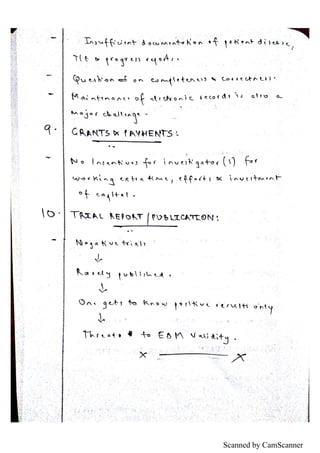 - Insufficient documentation of patient disease,
T/t & progress reports.
- Question on completeness & correctness.
- Maintenance of electronic records is also a
major challenge.
9. GRANTS & PAYMENTS:
- No Incentives for investigator(s) for
working extra time, efforts & investment
of capital.
10. TRIAL REPORT/PUBLICATION:
- Negative trials
↓
Rarely published.
↓
One gets to know positive results only
↓
Threats to EBM validity.
x ——— x
Scanned by CamScanner